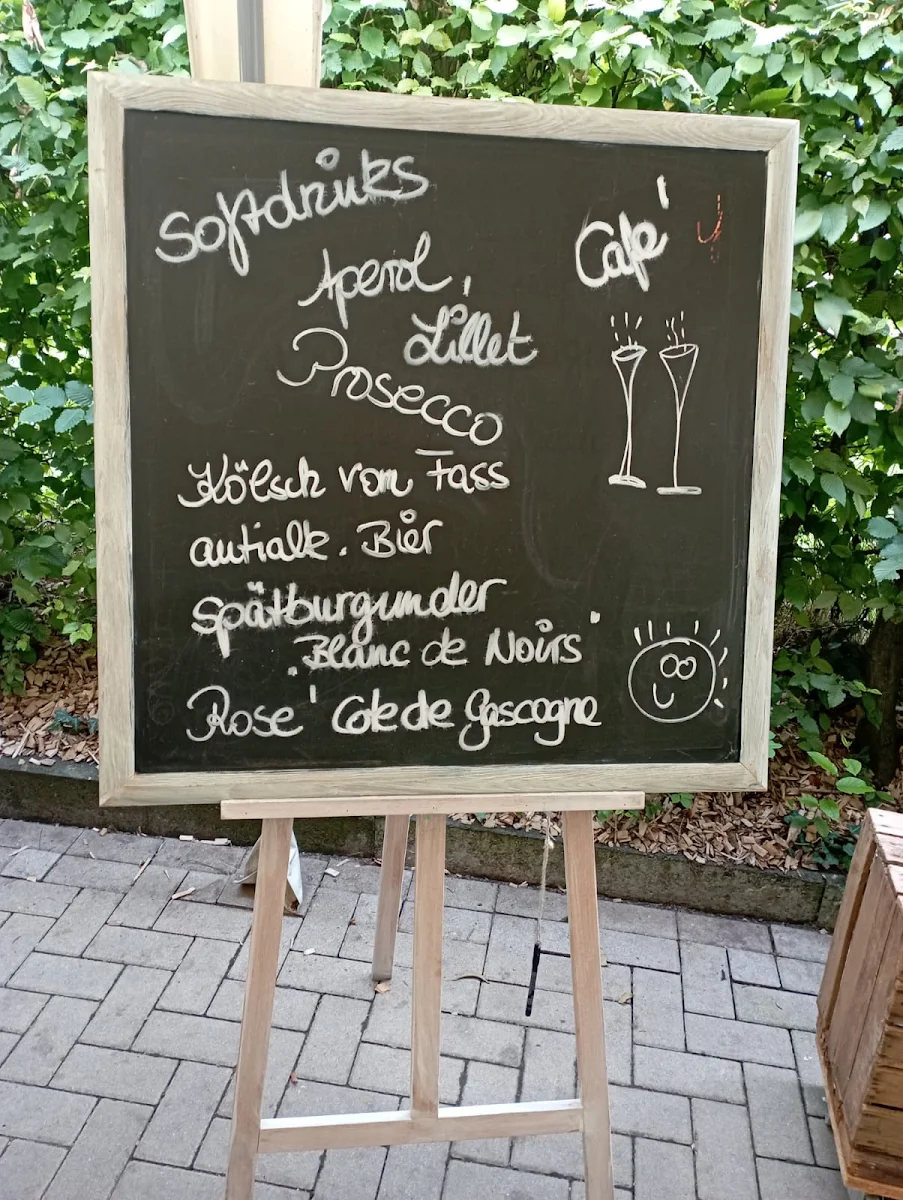 Softdrinks
Café
Aperol,
Lillet
Prosecco
Kölsch vom Fass
antialk. Bier
Spätburgunder
"Blanc de Noirs"
Rosé Cote de Gascogne